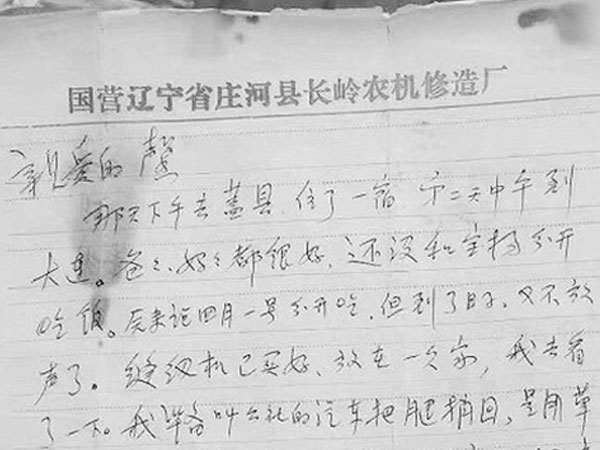 国营辽宁省庄河县长岭农机修造厂
亲爱的
那天下午去盖县,住了一宿 第二天中午到
大连。爸々、妈々都很好,还没和宝分开
吃饭。原来说四月一号分开吃,但到了日子,又不放
声了。缝纫机已买好、放在一久家,我去看
了一下。我准备叫公社的汽车把捎回,是用草